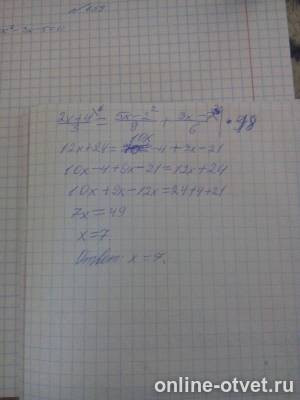 (2x+4)/3 = (5x-2)/9 + (3x-7)/6 | • 18
12x+24 = 10x -4 + 9x-21
10x-4+9x-21=12x+24
10x+9x-12x=24+4+21
7x=49
x=7
Ответ: x=7.
online-otvet.ru